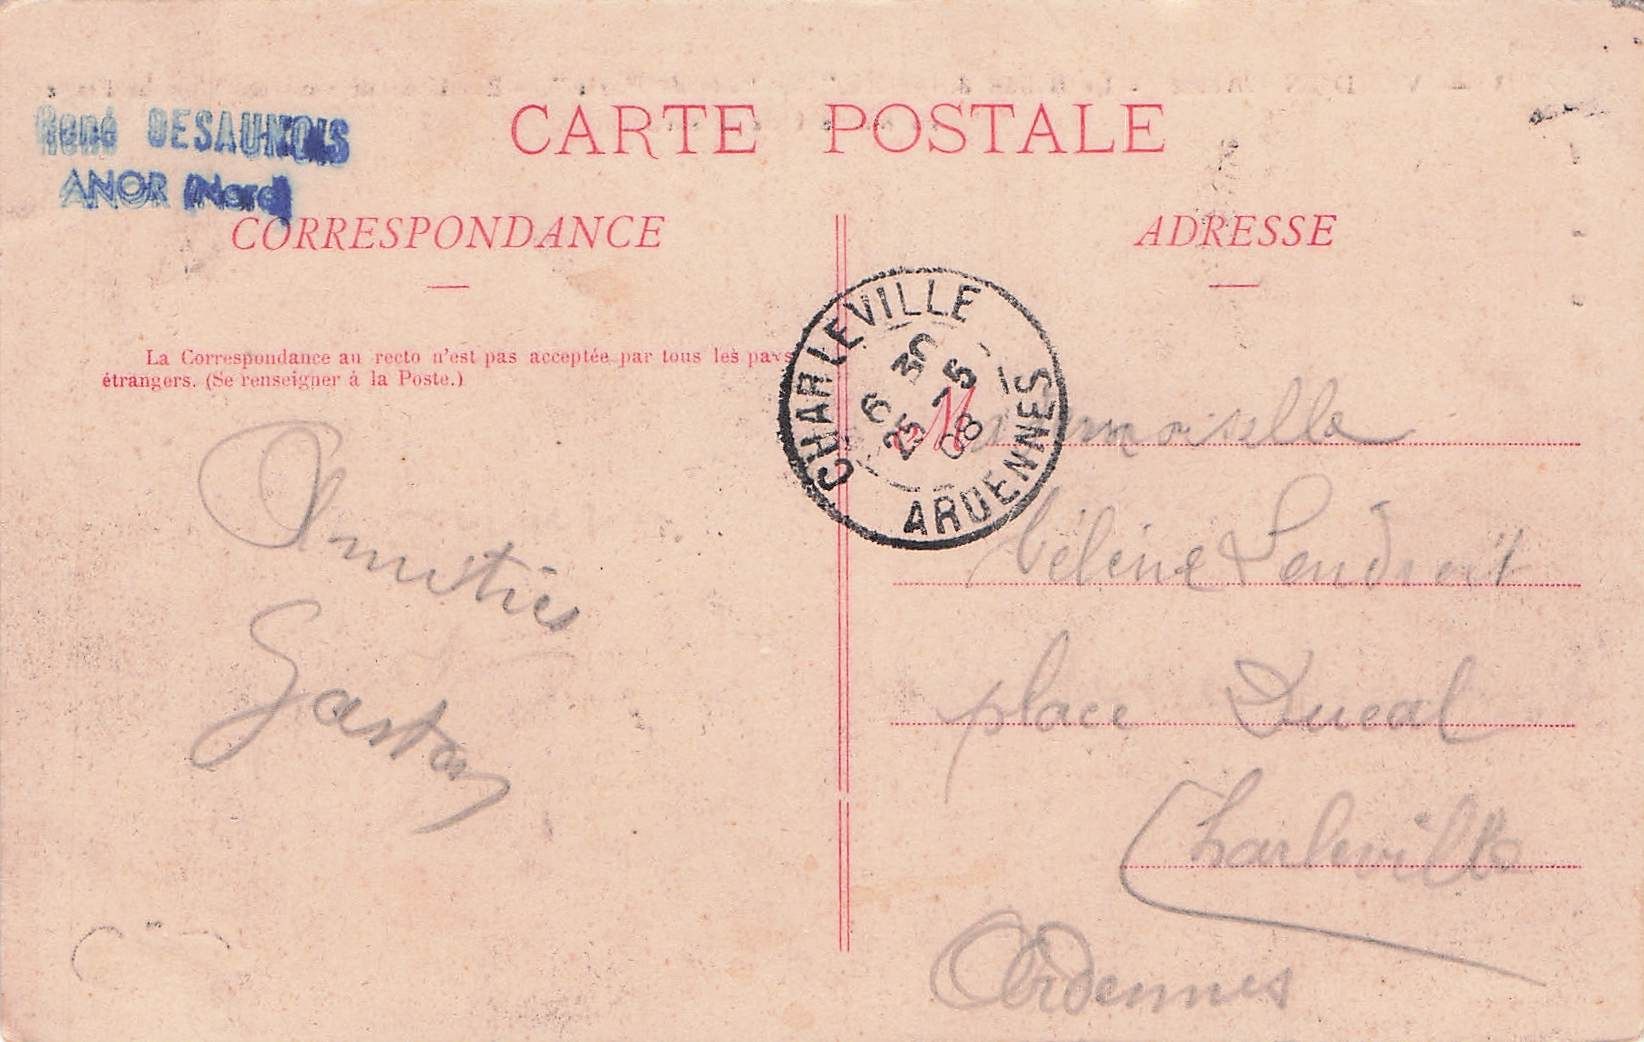 René DESAUNOIS
ANOR (Nord)
CARTE POSTALE
CORRESPONDANCE
ADRESSE
La Correspondance au recto n'est pas acceptée par tous les pays
étrangers. (Se renseigner à la Poste.)
CHARLEVILLE
6 35
25 -5
08
ARDENNES
Amitiés
Gaston
Mademoiselle
Hélène
place Ducal
Charleville
Ardennes